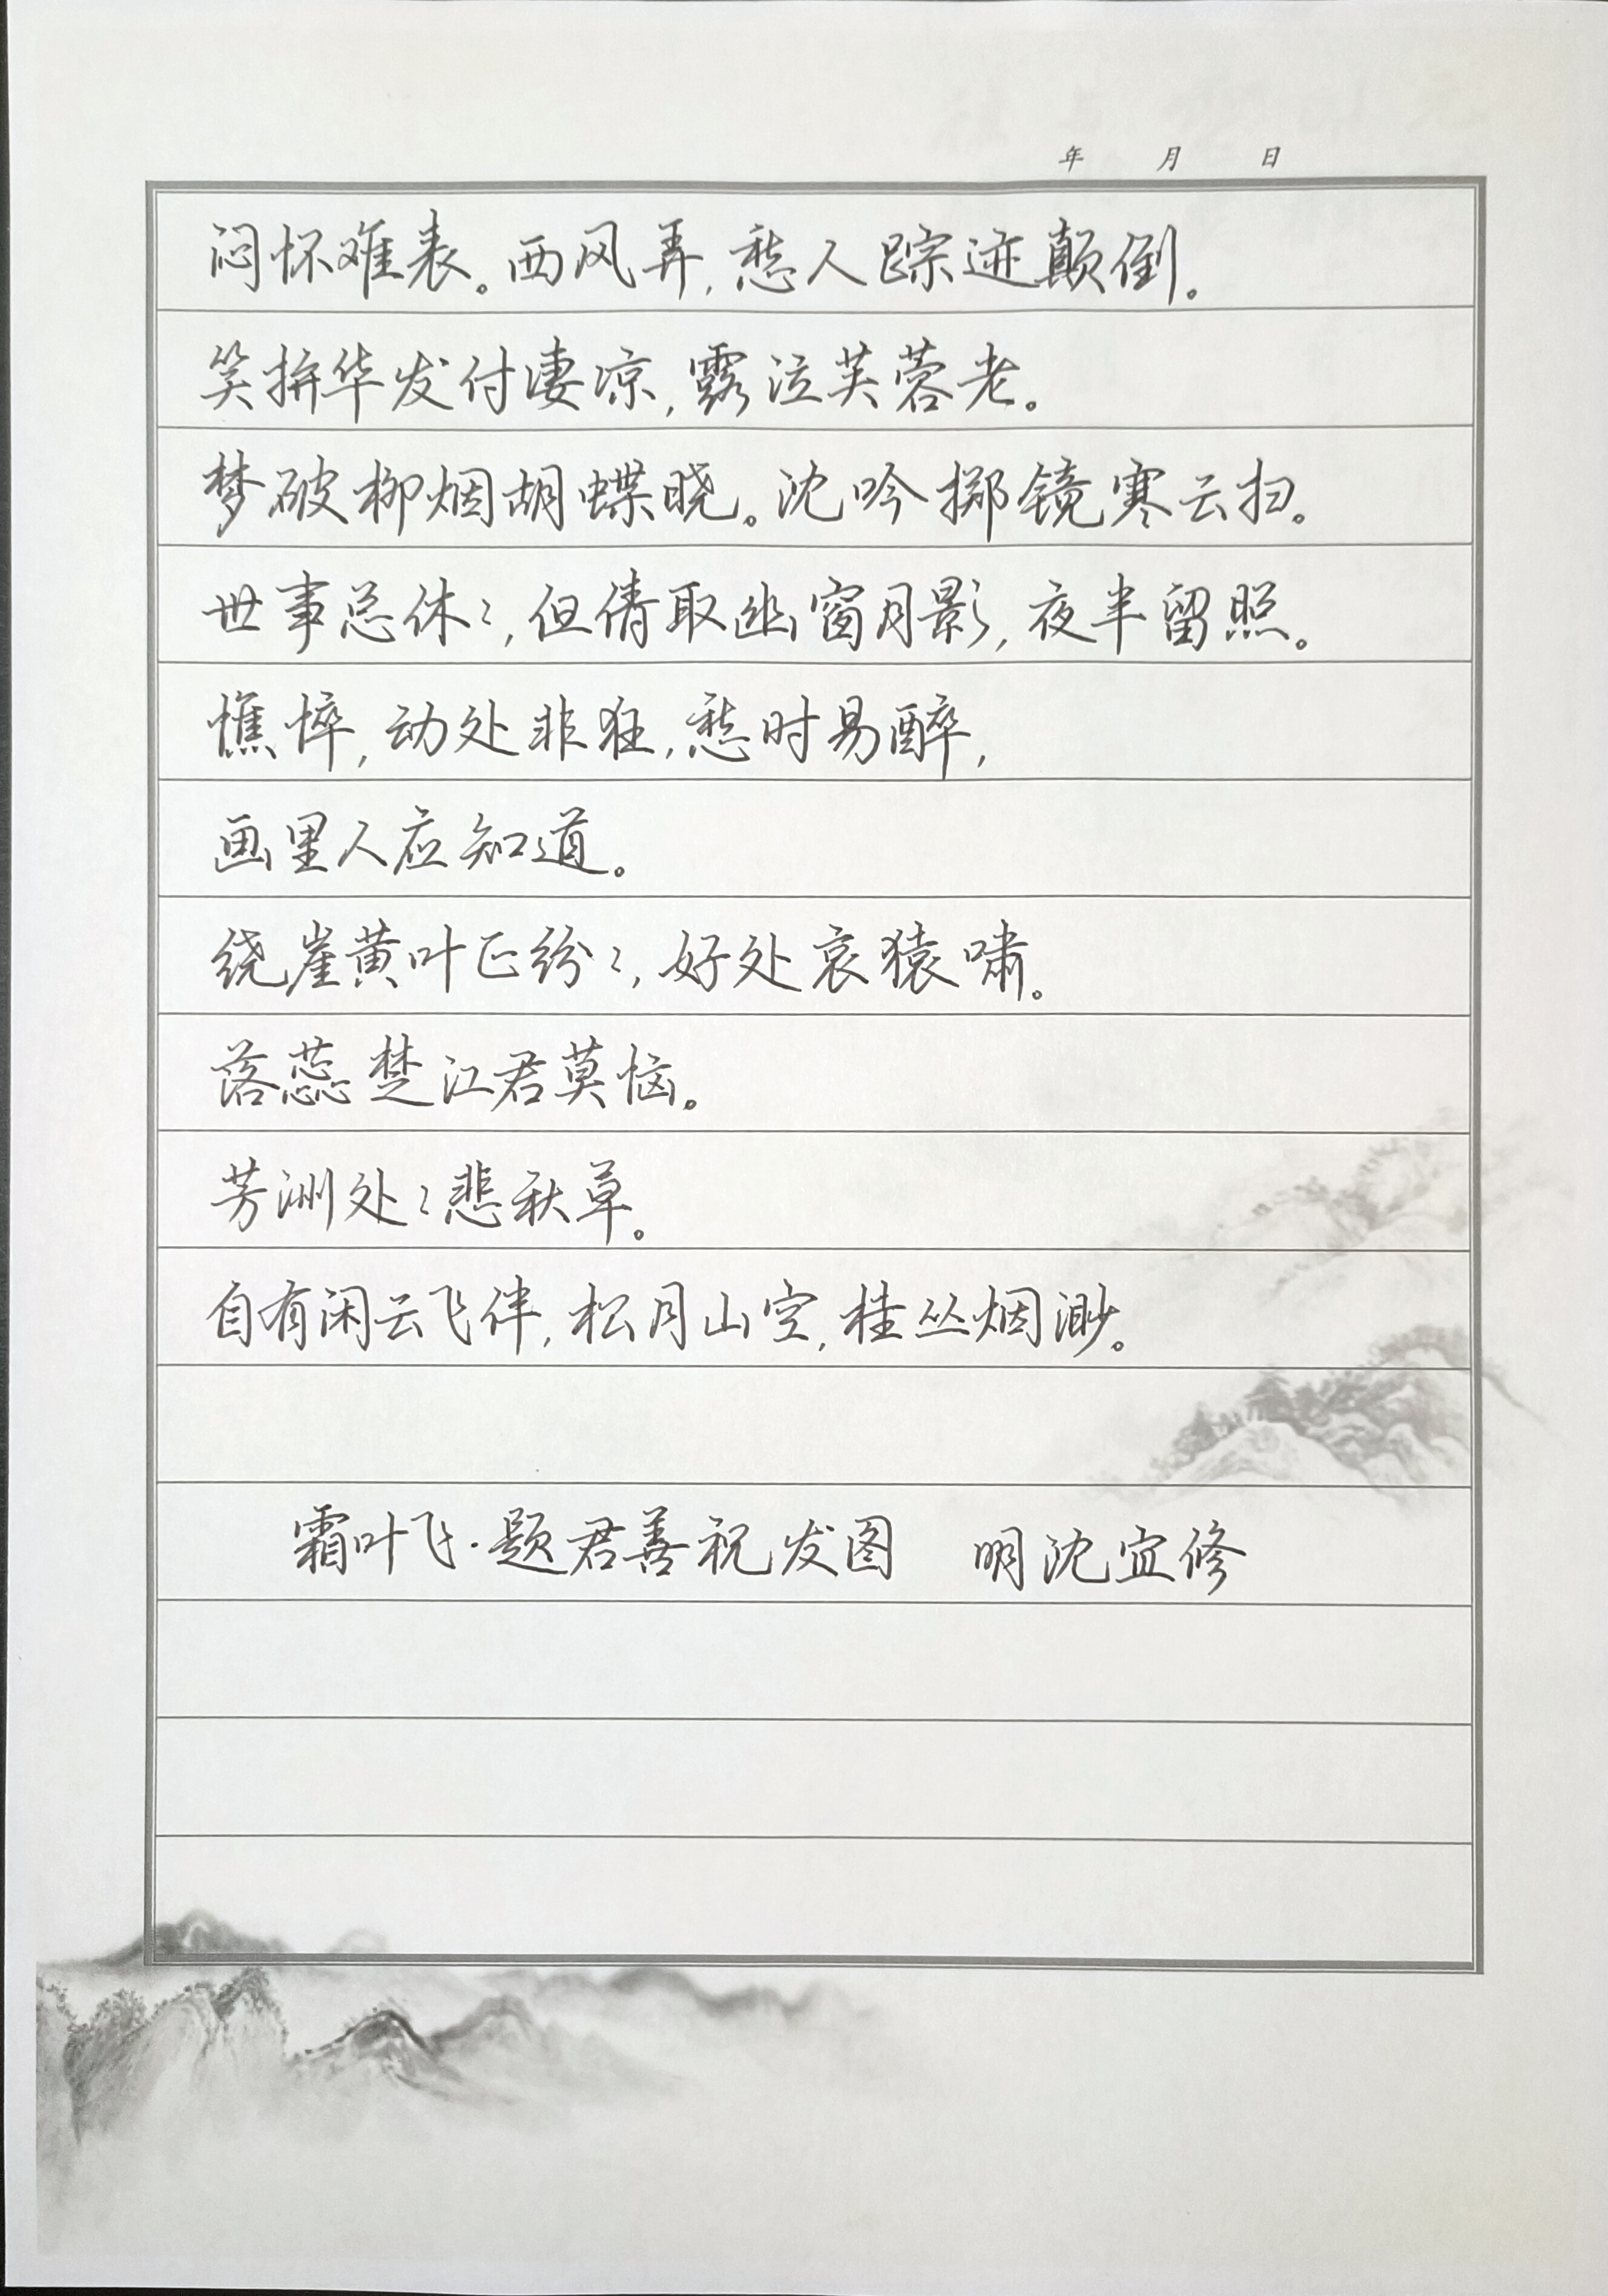 年 月 日
闷怀难表。西风弄,愁人踪迹颠倒。
笑拚华发付凄凉,露泣芙蓉老。
梦破柳烟胡蝶晓。沈吟掷镜寒云扫。
世事总休々,但倩取幽窗月影,夜半留照。
憔悴,动处非狂,愁时易醉,
画里人应知道。
绕崖黄叶正纷々,好处哀猿啸。
落蕊楚江君莫恼。
芳洲处々悲秋草。
自有闲云飞伴,松月山空,桂丛烟渺。
霜叶飞·题君善祝发图 明沈宜修